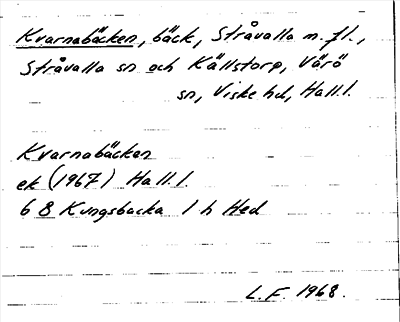 Kvarnabäcken, bäck, Stråvalla m. fl.,
Stråvalla sn och Källstorp, Värö
sn, Viske hd, Hall.
Kvarnabäcken
ek (1967) Hall.
6 8 Kungsbacka 1 h Hed
L. F. 1968.